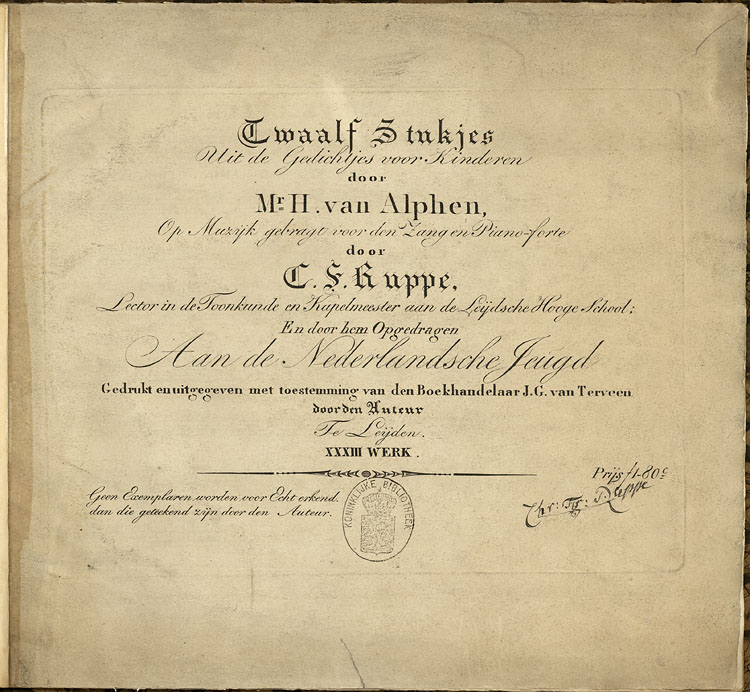 Twaalf Stukjes
Uit de Gedichtjes voor Kinderen
door
Mr. H. van Alphen,
Op Muzijk gebragt voor den Zang en Piano-forte
door
C. F. Ruppe,
Lector in de Toonkunde en Kapelmeester aan de Leijdsche Hooge School;
En door hem Opgedragen
Aan de Nederlandsche Jeugd
Gedrukt en uitgegeven met toestemming van den Boekhandelaar J. G. van Terveen
door den Auteur
Te Leijden.
XXXIII WERK.
Prijs f1-80 c
Geen Exemplaren worden voor Echt erkend.
dan die geteekend zijn door den Auteur.
KONINKLIJKE BIBLIOTHEEK
Chr: Fr: Ruppe